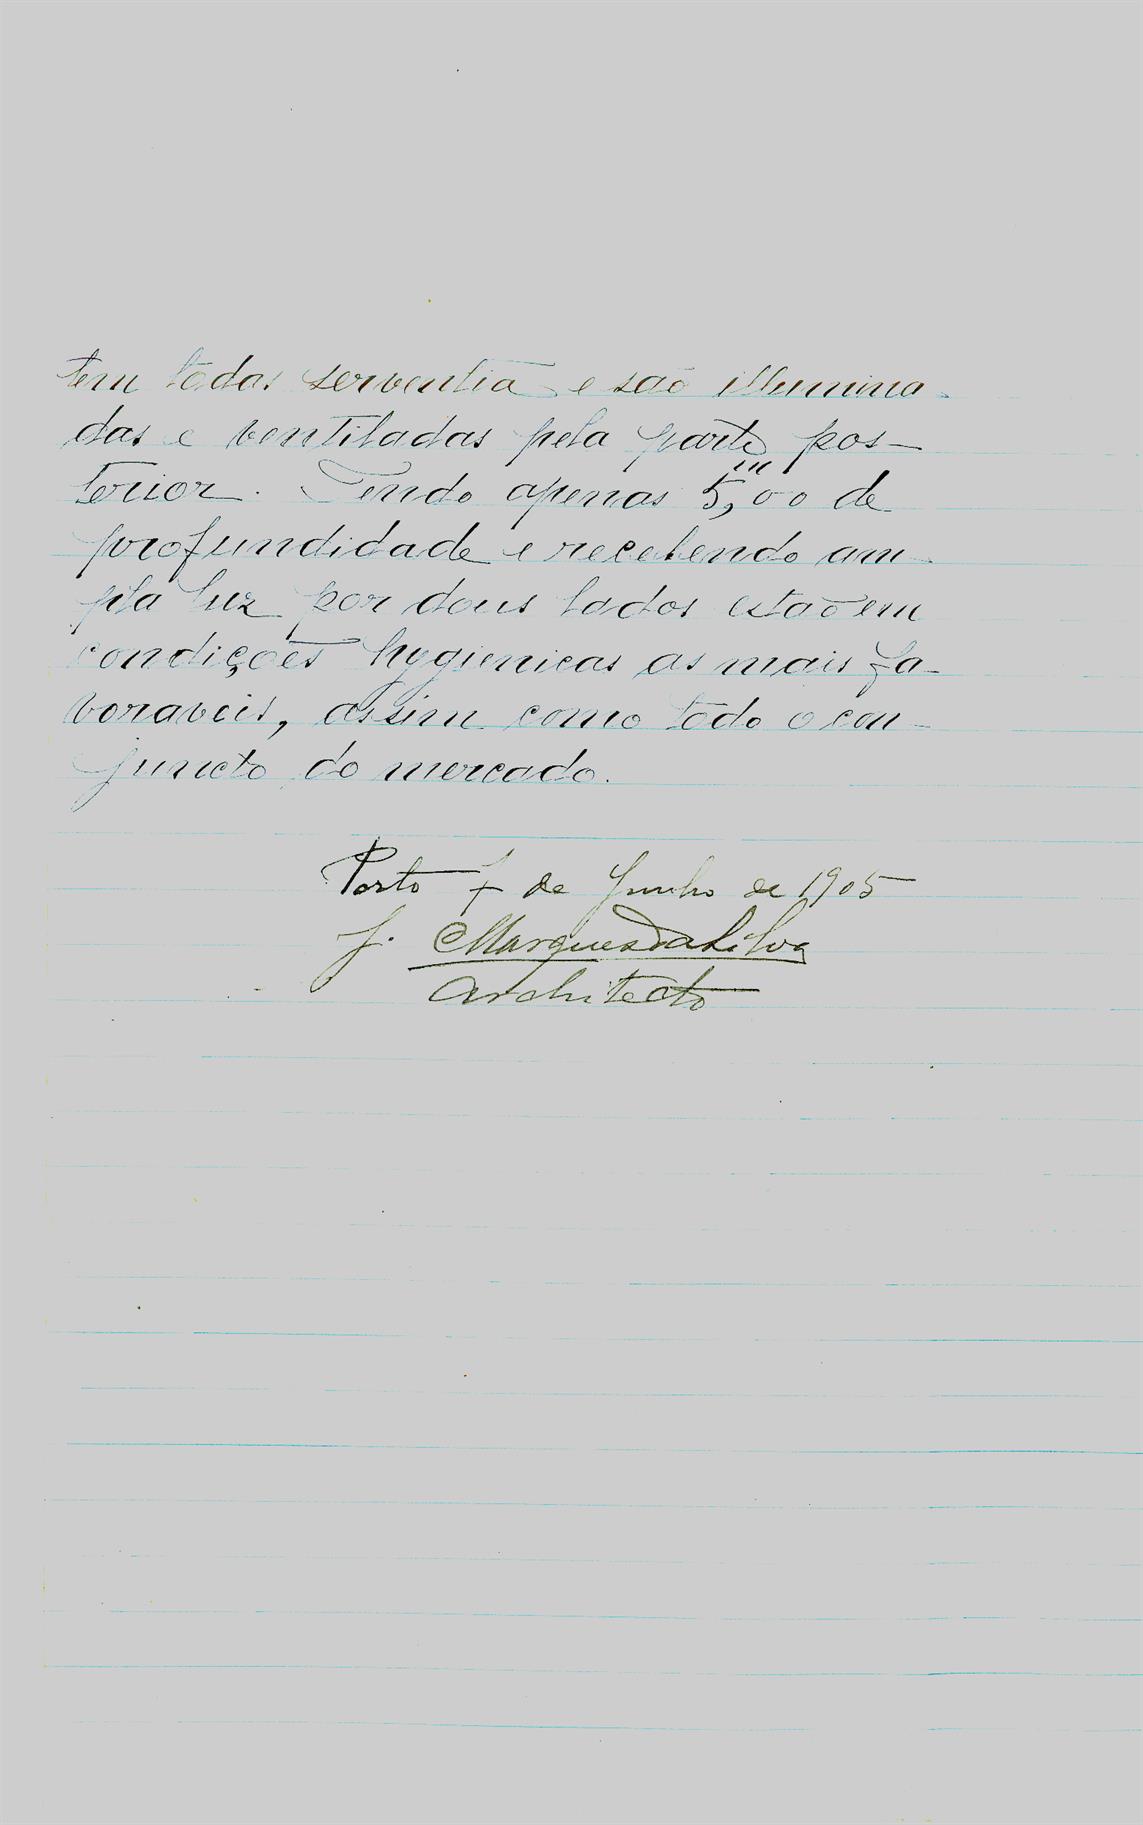 tem todas serventia e são illumina-
das e ventiladas pela parte pos-
terior. Tendo apenas 5,ᵐ00 de
profundidade e recebendo am-
pla luz por dous lados estão em
condições hygienicas as mais fa-
voraveis, assim como todo o con-
juncto do mercado.
Porto 7 de Junho de 1905
J. Marques da Silva
Architecto